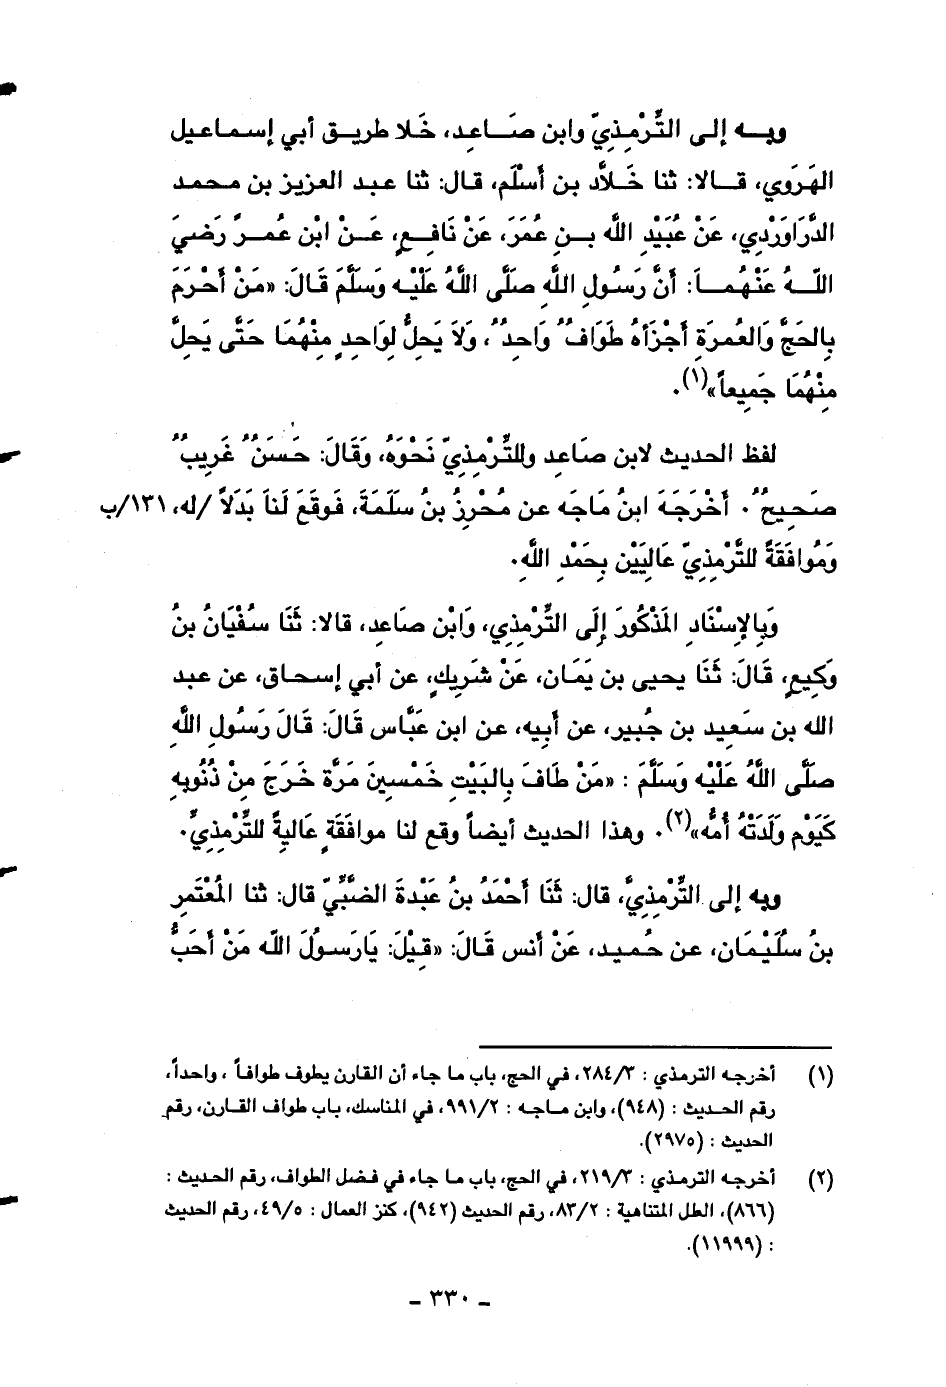 وبـــه إلى التِّرْمِذِيّ وابن صَـــاعِد، خَلا طريـــق أبي إســـماعيل
الهَرَوي، قـــالا: ثنا خَـلاَّد بن أَسْلَم، قال: ثنا عبد العزيز بن محمد
الدَّرَاوَرْدِي، عَنْ عُبَيْدِ اللَّه بـــنِ عُمَرَ، عَنْ نَافِـــعٍ، عَـــنْ ابْنِ عُمـــرَ رَضِيَ
اللَّـــهُ عَنْهُمـــا: أَنَّ رَسُولِ اللَّهِ صَلَّى اللَّهُ عَلَيْهِ وَسَلَّمَ قَالَ: «مَنْ أَحْرَمَ
بِالحَجِّ وَالعُمرَةِ أَجْزَأهُ طَوَافٌ وَاحِدٌ، وَلاَ يَحِلُّ لِوَاحِدٍ مِنْهُمَا حَتَّى يَحِلَّ
مِنْهُمَا جَمِيعاً»(١).
لفظ الحديث لابن صَاعِد وللتِّرْمِذِيّ نَحْوَهُ، وَقَالَ: حَسَنٌ غَرِيبٌ
صَحِيحٌ. أَخْرَجَهَ ابنُ مَاجَه عن مُحْرِزُ بنُ سَلَمَةَ، فَوقَعَ لَنَا بَدَلاً /له، ١٣١/ب
وَمُوافَقَةً للتِّرْمِذِيّ عَالِيَيْنِ بِحَمْدِ اللَّهِ.
وَبِالإِسْنَادِ المَذْكُورَ إِلَى التِّرْمِذِي، وَابْنِ صَاعِد، قالا: ثَنَا سُفْيَانُ بنُ
وَكِيعٍ، قَالَ: ثَنَا يحيى بن يَمَان، عَنْ شَرِيكٍ، عن أبي إسحاق، عن عبد
الله بن سَعِيدِ بن جُبير، عن أَبيه، عن ابن عَبَّاس قَالَ: قَالَ رَسُولِ اللَّهِ
صَلَّى اللَّهُ عَلَيْهِ وَسَلَّمَ : «مَنْ طَافَ بِالبَيْتِ خَمْسِينَ مَرَّة خَرَجَ مِنْ ذُنُوبِهِ
كَيَوْمِ وَلَدَتْهُ أُمُّه»(٢). وهذا الحديث أيضاً وقع لنا موافَقَةٍ عَالِيَةً للتِّرْمِذِيِّ.
وبه إلى التِّرْمِذِيَّ، قال: ثَنَا أَحْمَدُ بنُ عَبْدةَ الضبِّيِّ قال: ثنا المُعْتَمِر
بنُ سُلَيْمَان، عن حُميد، عَنْ أَنسِ قَالَ: «قِيْلَ: يَارَسولَ اللَّه مَنْ أَحَبُّ
(١) أخرجه الترمذي : ٢٨٤/٣، في الحج، باب ما جاء أن القارن يطوف طوافاً ، واحداً،
رقم الحديث : (٩٤٨)، وابن ماجه : ٩٩١/٢، في المناسك، باب طواف القارن، رقم
الحديث : (٢٩٧٥).
(٢) أخرجه الترمذي : ٢١٩/٣، في الحج، باب ما جاء في فضل الطواف، رقم الحديث :
(٨٦٦)، العلل المتناهية : ٨٣/٢، رقم الحديث (٩٤٢)، كنز العمال : ٤٩/٥، رقم الحديث
: (١١٩٩٩).
ـ ٣٣٠ ـ